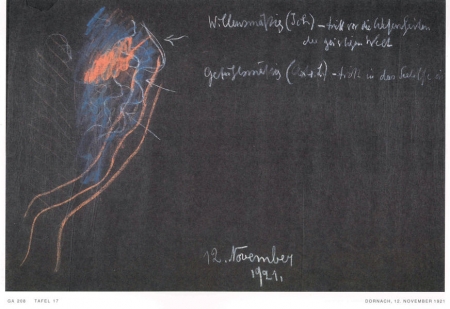 Willensmäßig (Ich) – tritt vor die
der geistigen Welt
Gefühlsmäßig – tritt in das
12. November
1921.
GA 208 TAFEL 17
DORNACH, 12. NOVEMBER 1921